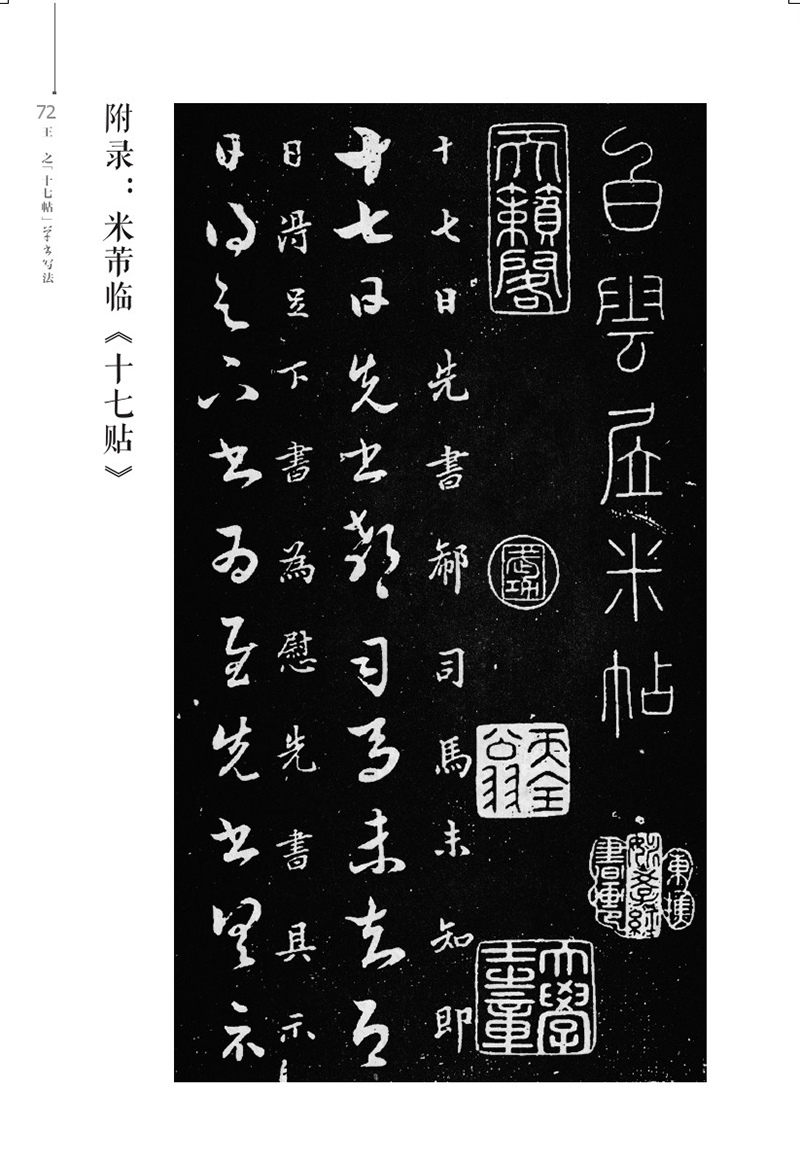 72
王 之「十七帖」草书写法
附录：米芾临《十七贴》
白雲居米帖
天籟閣
武功
十七日先書郗司馬未知即
十七日先書郗司馬未去即
日得足下書為慰先書具示
日得足下書為慰先書具示